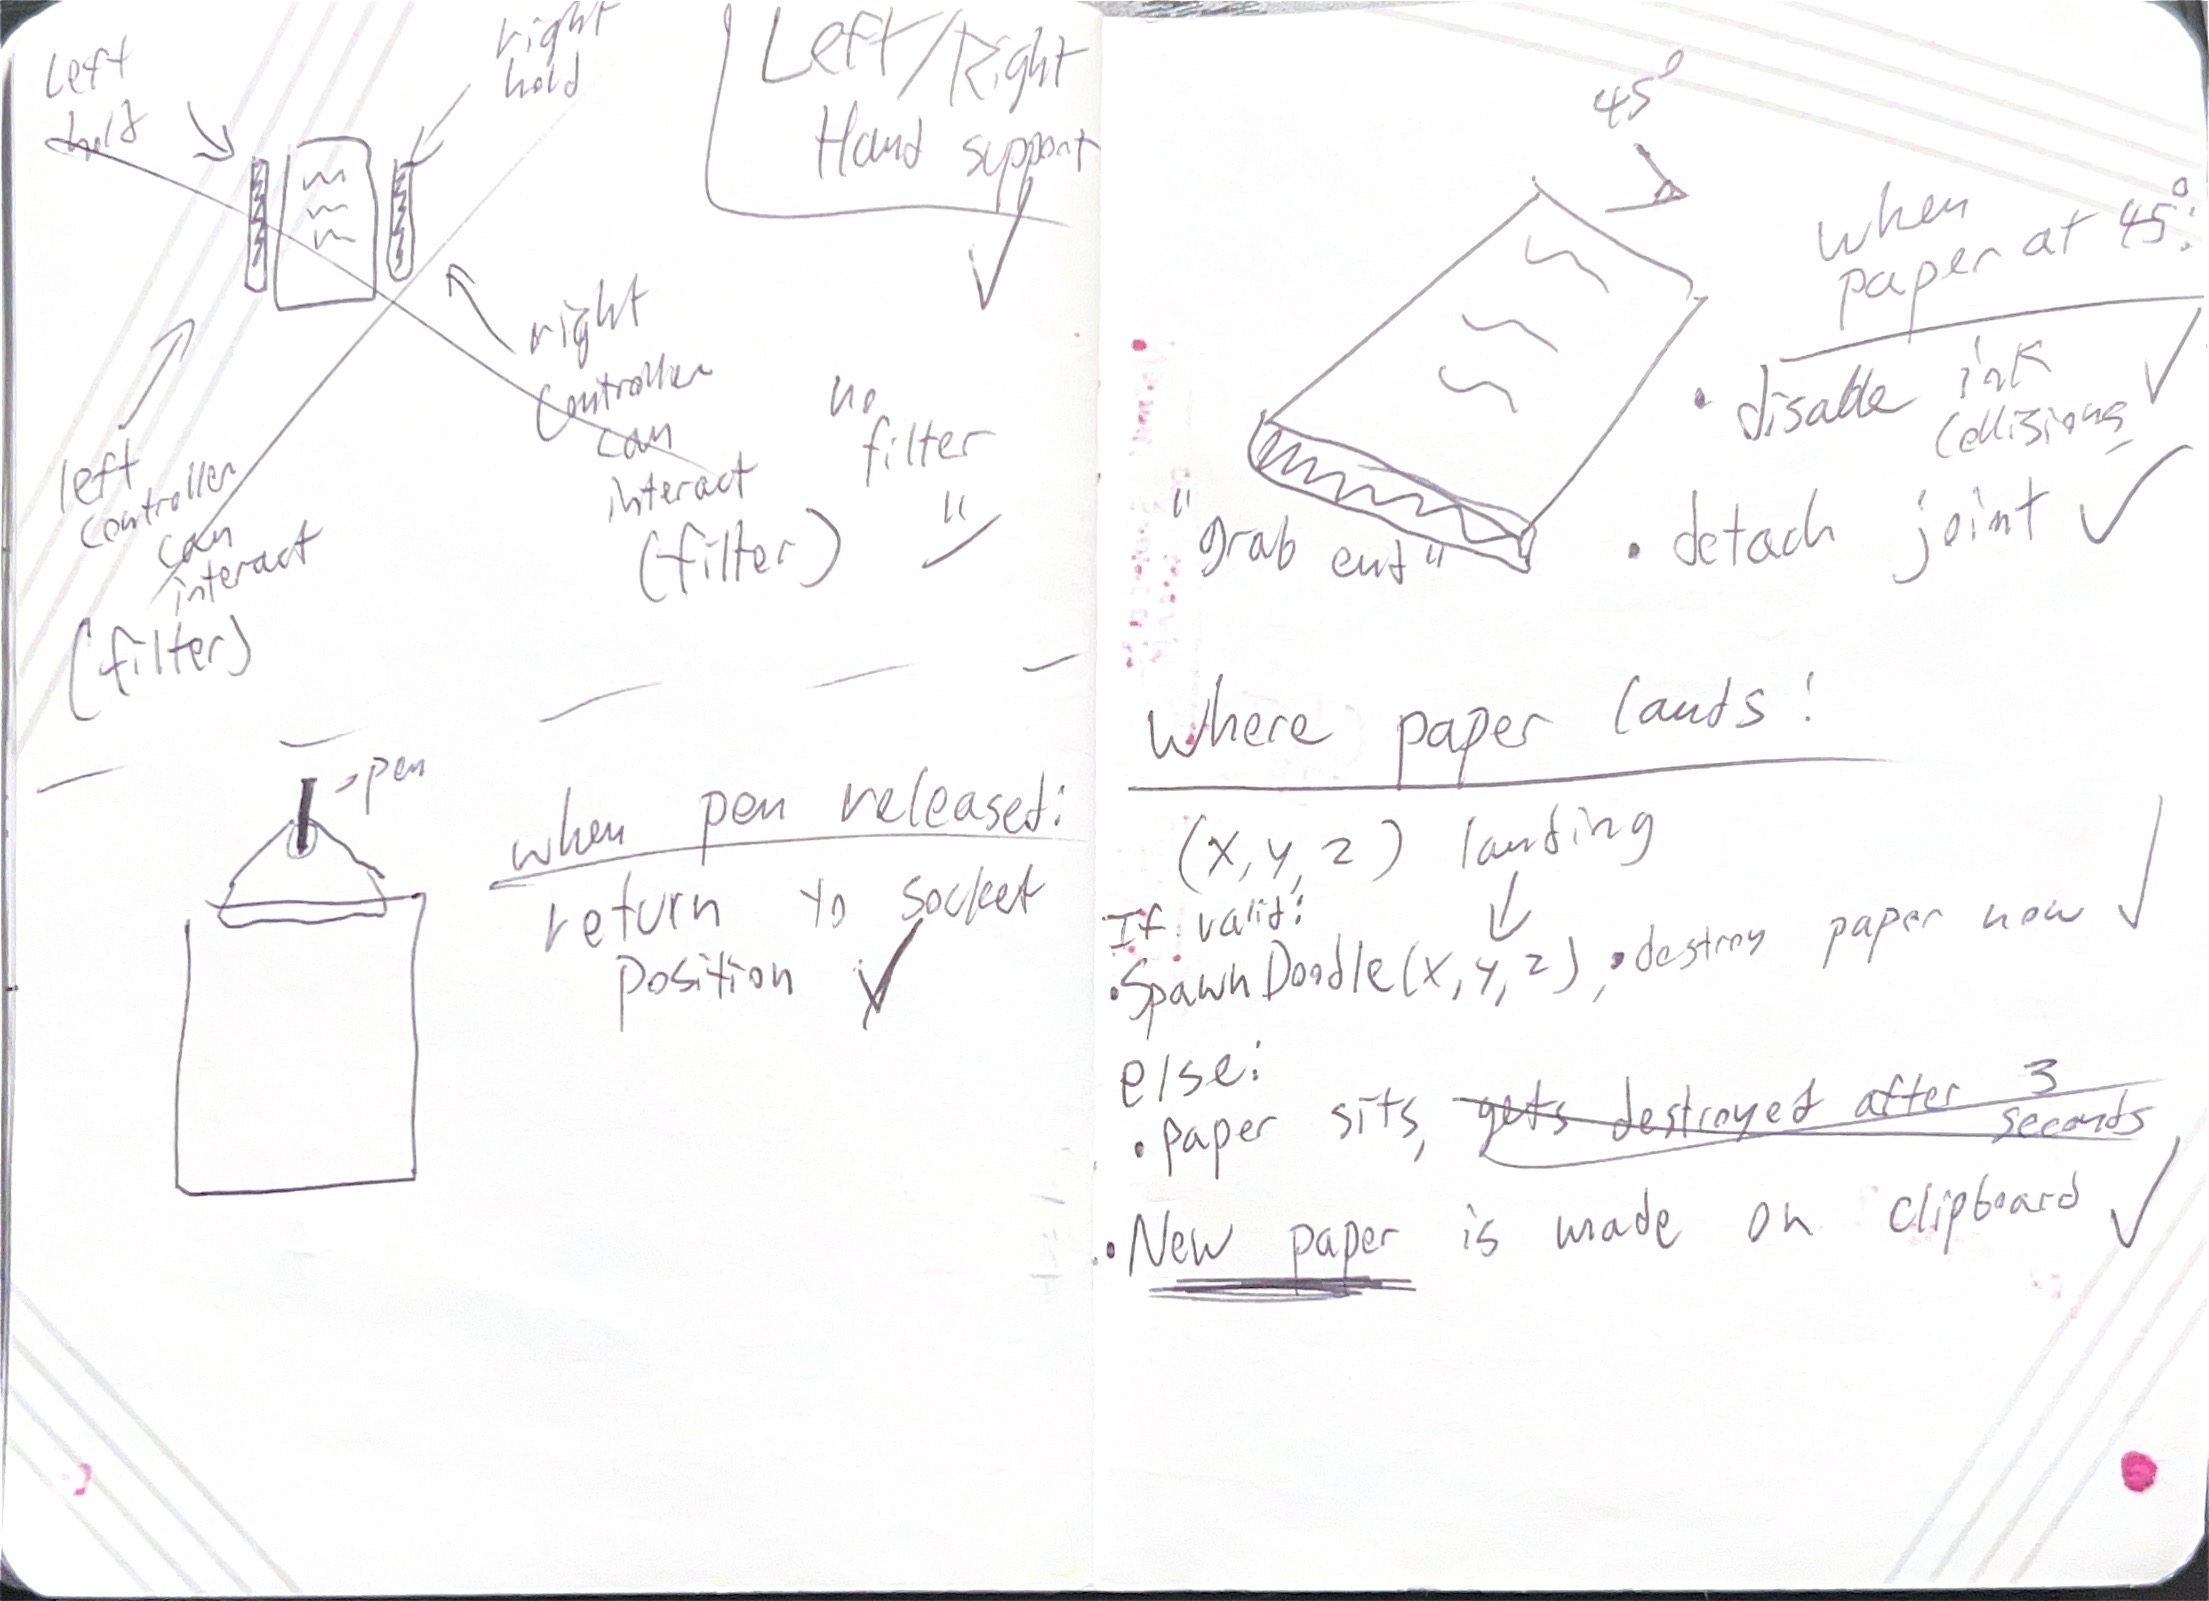 Left/Right
Hand support
left
hold
right
hold
right
controller
can
interact
(filter)
left
controller
can
interact
(filter)
no
filter
pen
when pen released:
return to socket
position
45°
when
paper at 45°:
• disable ink
collisions
• detach joint
"grab end"
Where paper lands:
(x, y, z) landing
If valid:
• SpawnDoodle(x, y, z), • destroy paper now
else:
• paper sits, gets destroyed after 3
seconds
• New paper is made on clipboard